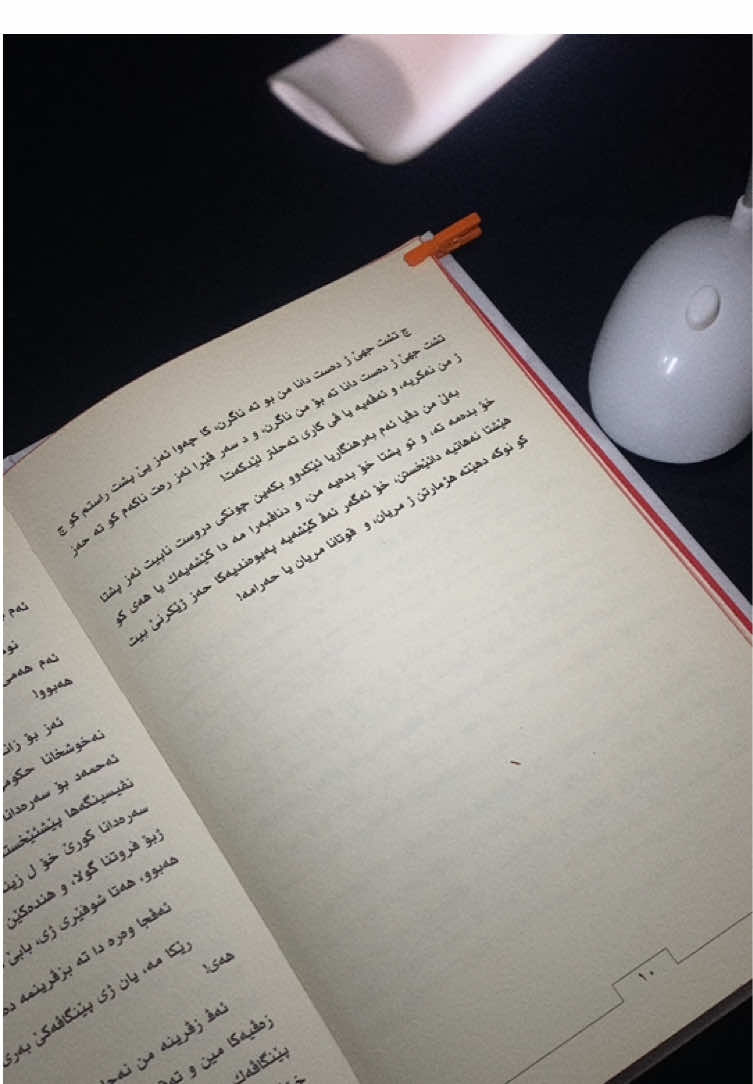 چ تشت جهێ ژ دەست دانا من بو تە ناگرن، کا چەوا ئەز یێ پشت راستم کو چ
تشت جهێ ژ دەست دانا تە بۆ من ناگرن، و د سەر ڤێرا ئەز رەت ناکەم کو تە حەز
ژ من نەکریە، و ئەڤەیە یا ڤی کاری تەحلتر لێدکەت!
بەلێ من دڤیا ئەم بەرهنگاریا ئێکدوو بکەین چونکی دروست نابیت ئەز پشتا
خۆ بدەمە تە، و تو پشتا خۆ بدەیە من، و دناڤبەرا مە دا کێشەیەك یا هەی کو
هێشتا نەهاتیە دائێخستن، خۆ ئەگەر ئەڤ کێشەیە پەیوەندیەکا حەز ژێکرنێ بیت
کو نوکە دهێتە هژمارتن ژ مریان، و قوتانا مریان یا حەرامە!
١٠
ئەم
ئەم هەمی
هەبوو!
ئەز بۆ زانـ
نەخوشخانا حکومـ
ئەحمەد بۆ سەرەدانا
نڤیسینگەها پێشئێخستـ
سەرەدانا کورێ خۆ ل زینـ
ژبۆ فروتنا گولا، و هندەکێن
هەبوو، هەتا شوفێری ژی، بابێ
ئەڤجا وەرە دا تە بزڤرینمە دە
رێکا مە، یان ژی پێنگاڤەکێ بەری
هەی!
ئەڤ زڤرینە من نەحـ
زەڤیەکا مین و تە
پێنگاڤەك